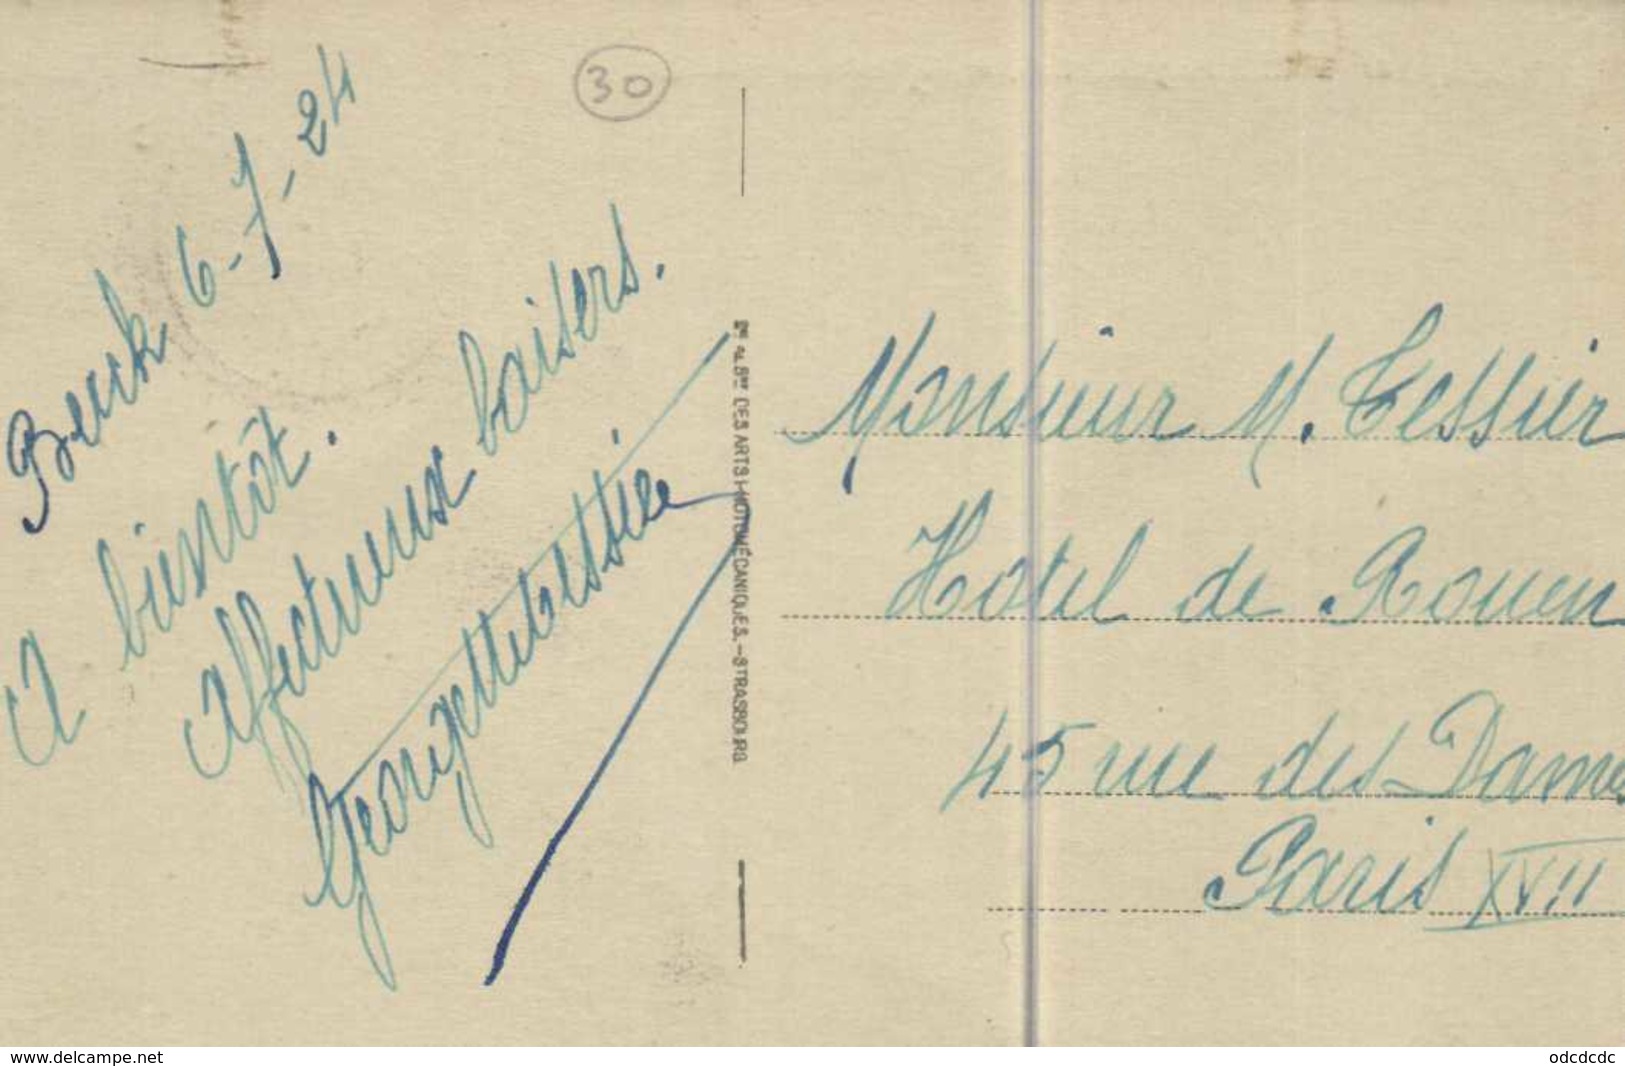 30
Berck 6-7-24
A bientôt.
affectueux baisers.
Georgette Tessier
DES ARTS PHOTOMÉCANIQUES. - STRASBOURG
Monsieur M. Tessier
Hôtel de Rouen
45 rue des Dames
Paris XVII
www.delcampe.net
odcdcdc